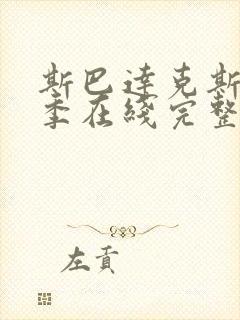 斯巴达克斯
季在线完整
左贡